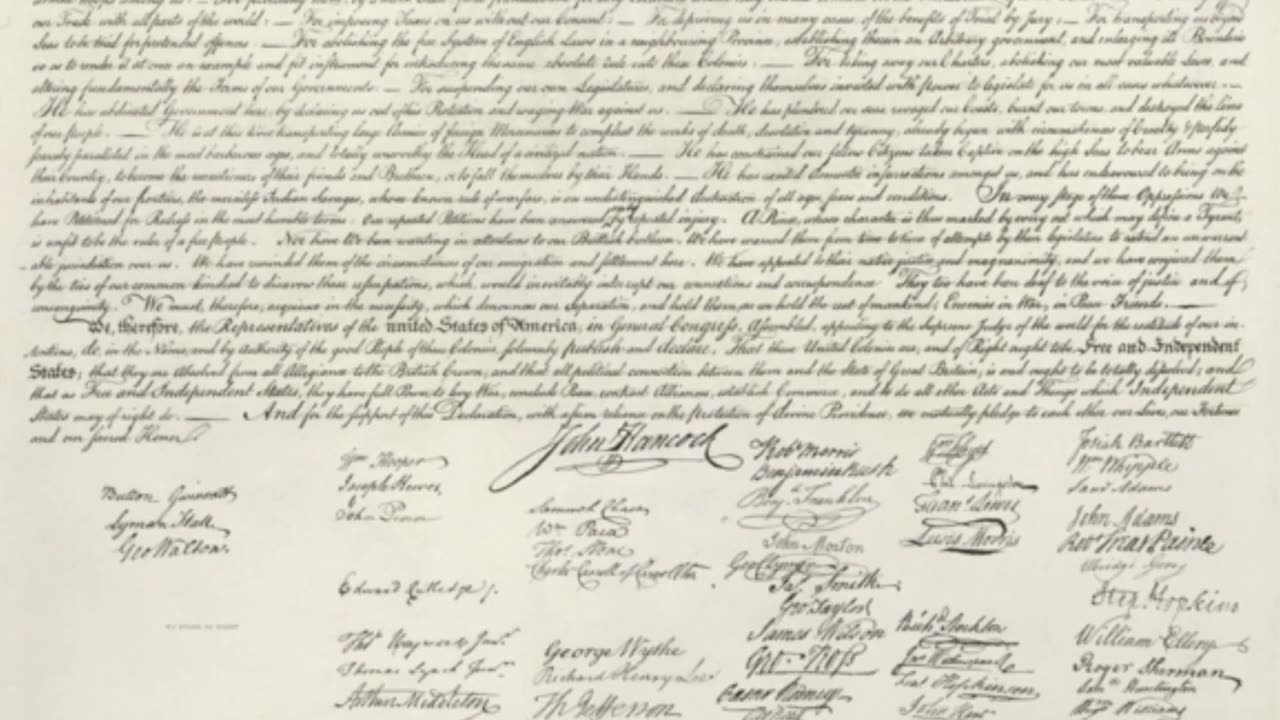 our Trade with all parts of the world: — For imposing Taxes on us without our Consent: — For depriving us in many cases of the benefits of Trial by Jury: — For transporting us beyond
Seas to be tried for pretended offences: — For abolishing the free System of English Laws in a neighbouring Province, establishing therein an Arbitrary government, and enlarging its Boundaries
so as to render it at once an example and fit instrument for introducing the same absolute rule into these Colonies: — For taking away our Charters, abolishing our most valuable Laws, and
altering fundamentally the Forms of our Governments: — For suspending our own Legislatures, and declaring themselves invested with power to legislate for us in all cases whatsoever. —
He has abdicated Government here, by declaring us out of his Protection and waging War against us. — He has plundered our seas, ravaged our Coasts, burnt our towns, and destroyed the lives
of our people. — He is at this time transporting large Armies of foreign Mercenaries to compleat the works of death, desolation and tyranny, already begun with circumstances of Cruelty & perfidy
scarcely paralleled in the most barbarous ages, and totally unworthy the Head of a civilized nation. — He has constrained our fellow Citizens taken Captive on the high Seas to bear Arms against
their Country, to become the executioners of their friends and Brethren, or to fall themselves by their Hands. — He has excited domestic insurrections amongst us, and has endeavoured to bring on the
inhabitants of our frontiers, the merciless Indian Savages, whose known rule of warfare, is an undistinguished destruction of all ages, sexes and conditions. In every stage of these Oppressions We
have Petitioned for Redress in the most humble terms: Our repeated Petitions have been answered by repeated injury. A Prince, whose character is thus marked by every act which may define a Tyrant,
is unfit to be the ruler of a free people. Nor have We been wanting in attentions to our Brittish brethren. We have warned them from time to time of attempts by their legislature to extend an unwarrant-
able jurisdiction over us. We have reminded them of the circumstances of our emigration and settlement here. We have appealed to their native justice and magnanimity, and we have conjured them
by the ties of our common kindred to disavow these usurpations, which, would inevitably interrupt our connections and correspondence. They too have been deaf to the voice of justice and of
consanguinity. We must, therefore, acquiesce in the necessity, which denounces our Separation, and hold them, as we hold the rest of mankind, Enemies in War, in Peace Friends. —
We, therefore, the Representatives of the united States of America, in General Congress, Assembled, appealing to the Supreme Judge of the world for the rectitude of our in-
tentions, do, in the Name, and by Authority of the good People of these Colonies, solemnly publish and declare, That these United Colonies are, and of Right ought to be Free and Independent
States; that they are Absolved from all Allegiance to the British Crown, and that all political connection between them and the State of Great Britain, is and ought to be totally dissolved; and
that as Free and Independent States, they have full Power to levy War, conclude Peace, contract Alliances, establish Commerce, and to do all other Acts and Things which Independent
States may of right do. — And for the support of this Declaration, with a firm reliance on the protection of divine Providence, we mutually pledge to each other our Lives, our Fortunes
and our sacred Honor.
Button Gwinnett
Lyman Hall
Geo Walton.
Wm Hooper
Joseph Hewes,
John Penn
Edward Rutledge /.
Thos Heyward Junr.
Thomas Lynch Junr.
Arthur Middleton
John Hancock
Samuel Chase
Wm Paca
Thos. Stone
Charles Carroll of Carrollton
George Wythe
Richard Henry Lee
Th Jefferson
Robt Morris
Benjamin Rush
Benj. Franklin
John Morton
Geo Clymer
Jas. Smith
Geo. Taylor
James Wilson
Geo. Ross
Caesar Rodney
Phil. Livingston
Frans. Lewis
Lewis Morris
Richd. Stockton
Jno Witherspoon
Fras. Hopkinson
John Hart
Josiah Bartlett
Wm Whipple
Saml Adams
John Adams
Robt Treat Paine
Elbridge Gerry
Step. Hopkins
William Ellery
Roger Sherman
Samel Huntington
Wm Williams